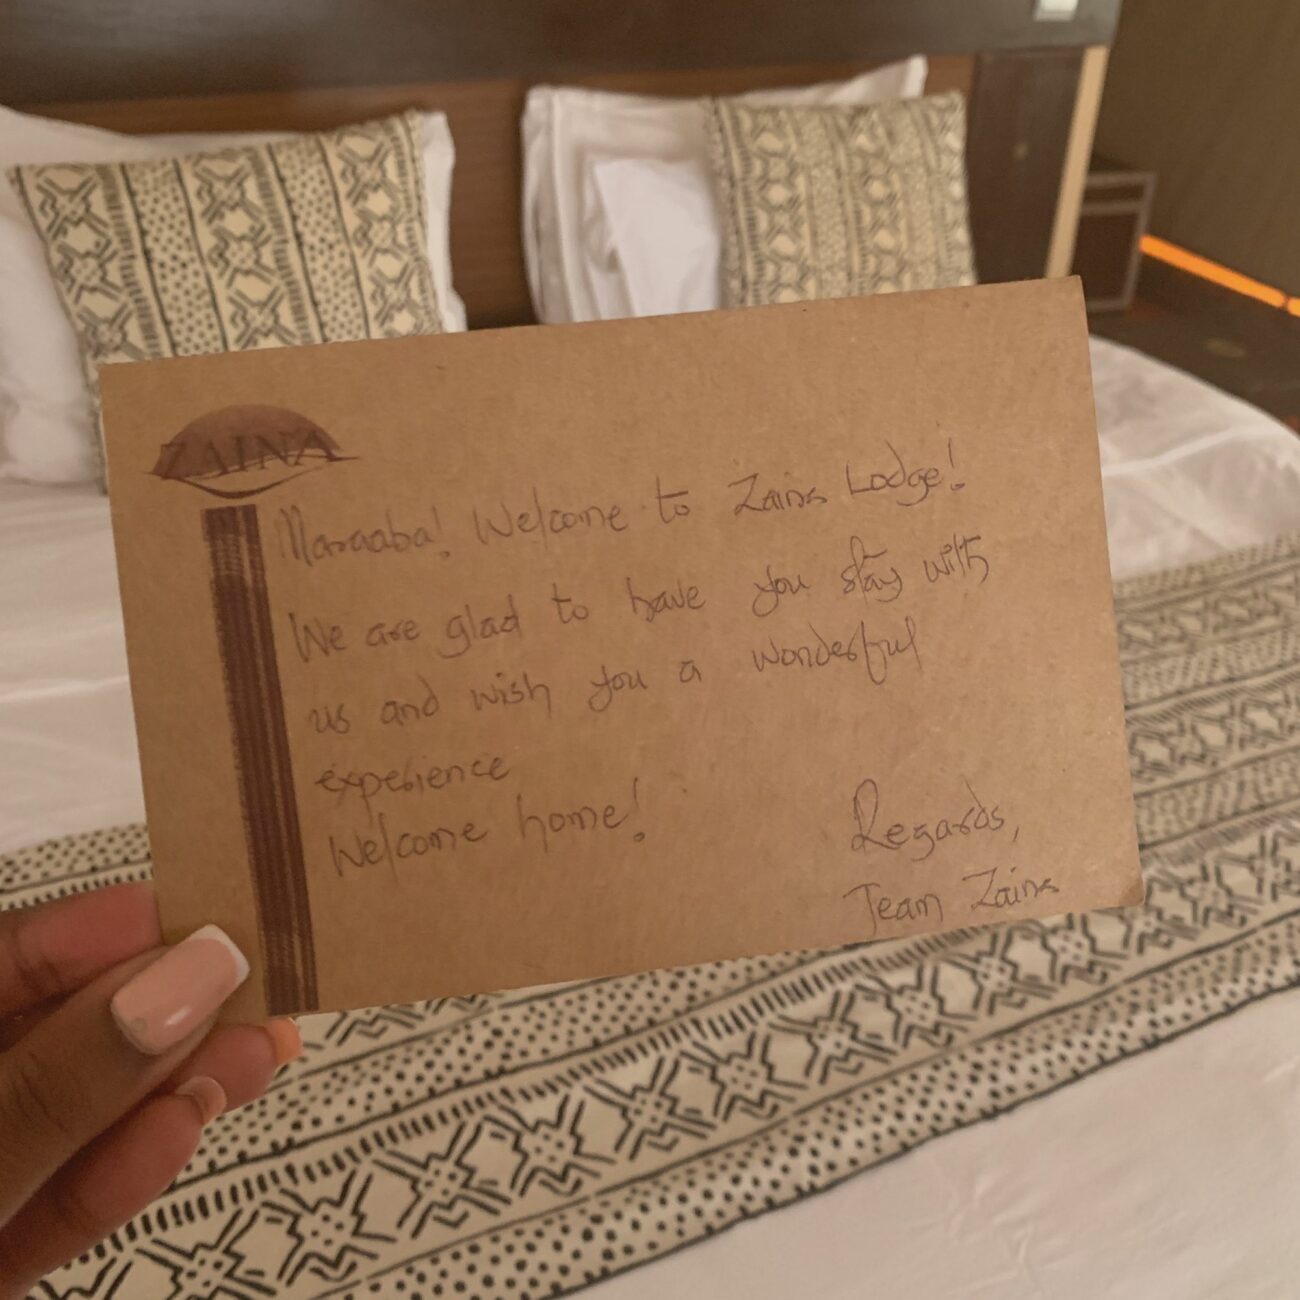 ZAINA
Maraaba! Welcome to Zaina Lodge!
We are glad to have you stay with
us and wish you a wonderful
experience
Welcome home!
Regards,
Team Zaina